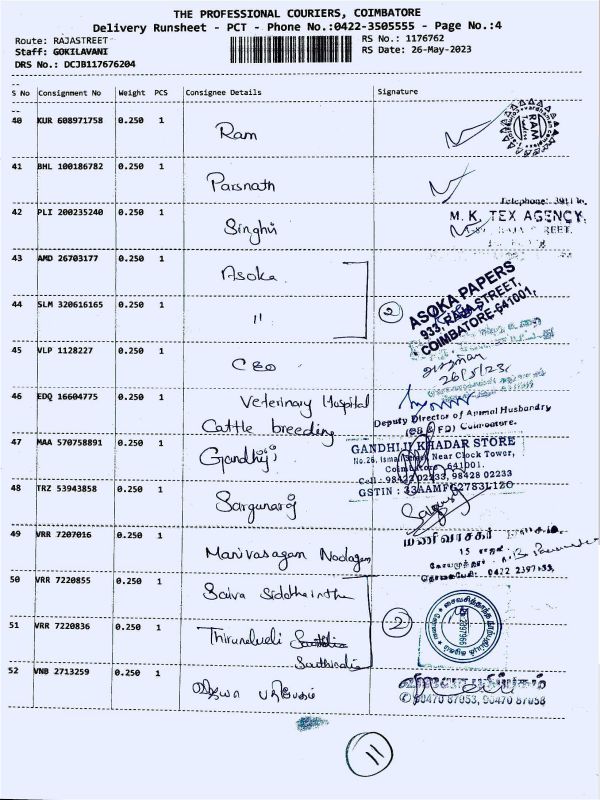 THE PROFESSIONAL COURIERS, COIMBATORE
Delivery Runsheet - PCT - Phone No.:0422-3505555 - Page No.:4
Route: RAJASTREET
RS No.: 1176762
Staff: GOKILAVANI
RS Date: 26-May-2023
DRS No.: DCJB117676204
S No Consignment No Weight PCS Consignee Details Signature
40 KUR 608971758 0.250 1 Ram
RAM
41 BHL 100186782 0.250 1 Parsnath
Telephone:
42 PLI 200235240 0.250 1 Singhvi
M. K. TEX AGENCY,
43 AMD 26703177 0.250 1 Asoka
44 SLM 320616165 0.250 1 "
2
ASOKA PAPERS
933, RAJA STREET,
COIMBATORE-641001,
45 VLP 1128227 0.250 1 CBO
26/5/23
46 EDQ 16604775 0.250 1 Veterinary Hospital
Cattle breeding
Deputy Director of Animal Husbandry
(CB & FD) Coimbatore.
47 MAA 570758891 0.250 1 Gandhiji
GANDHIJI KHADAR STORE
No.26, Ismail Street, Near Clock Tower,
Coimbatore - 641001.
Cell: 98422 02233, 98428 02233
GSTIN : 33AAMFG2783L1ZO
48 TRZ 53943858 0.250 1 Sargunaraj
49 VRR 7207016 0.250 1 Manivasagam Nadagam
மணிவாசகர்
15
தொலைபேசி: 0422 2397033,
50 VRR 7220855 0.250 1 Saiva Siddhaintha
51 VRR 7220836 0.250 1 Thiruneludi
2
52 VNB 2713259 0.250 1
90470 87053, 90470 87058
11